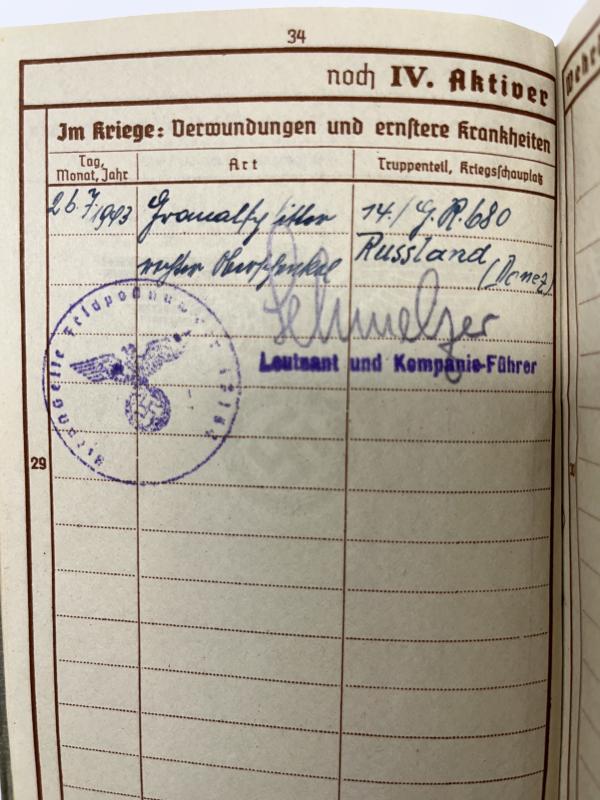 34
noch IV. Aktiver
Wehr
Im Kriege: Verwundungen und ernstere Krankheiten
Tag, Monat, Jahr
Art
Truppenteil, Kriegsschauplatz
26.7.1943 Granatsplitter 14./G.R.680
rechter Oberschenkel Russland
(Donez)
Schmelzer
Leutnant und Kompanie-Führer
Dienststelle Feldpostnummer
29